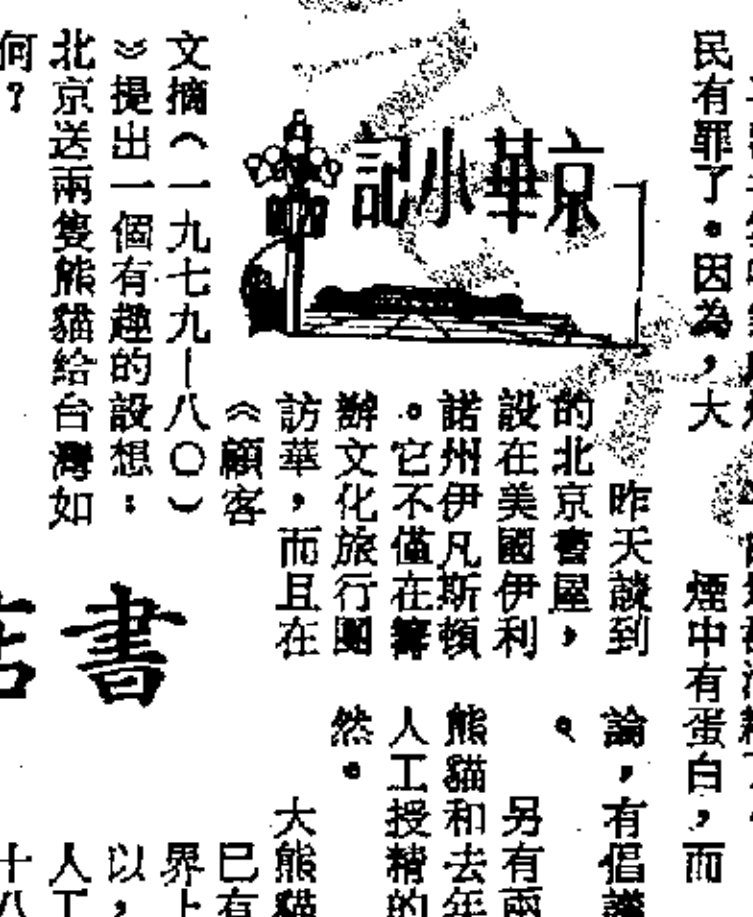 京華小記
民有罪了。因為，大
昨天談到
的北京書屋，
設在美國伊利
諾州伊凡斯頓
。它不僅在籌
辦文化旅行團
訪華，而且在
《顧客
文摘（一九七九—八〇）
》提出一個有趣的設想：
北京送兩隻熊貓給台灣如
何？
煙中有蛋白，而
論，有倡議
。
另有兩
熊貓和去年
人工授精的
然。
大熊貓
已有
界上
以，
人工
十八
書